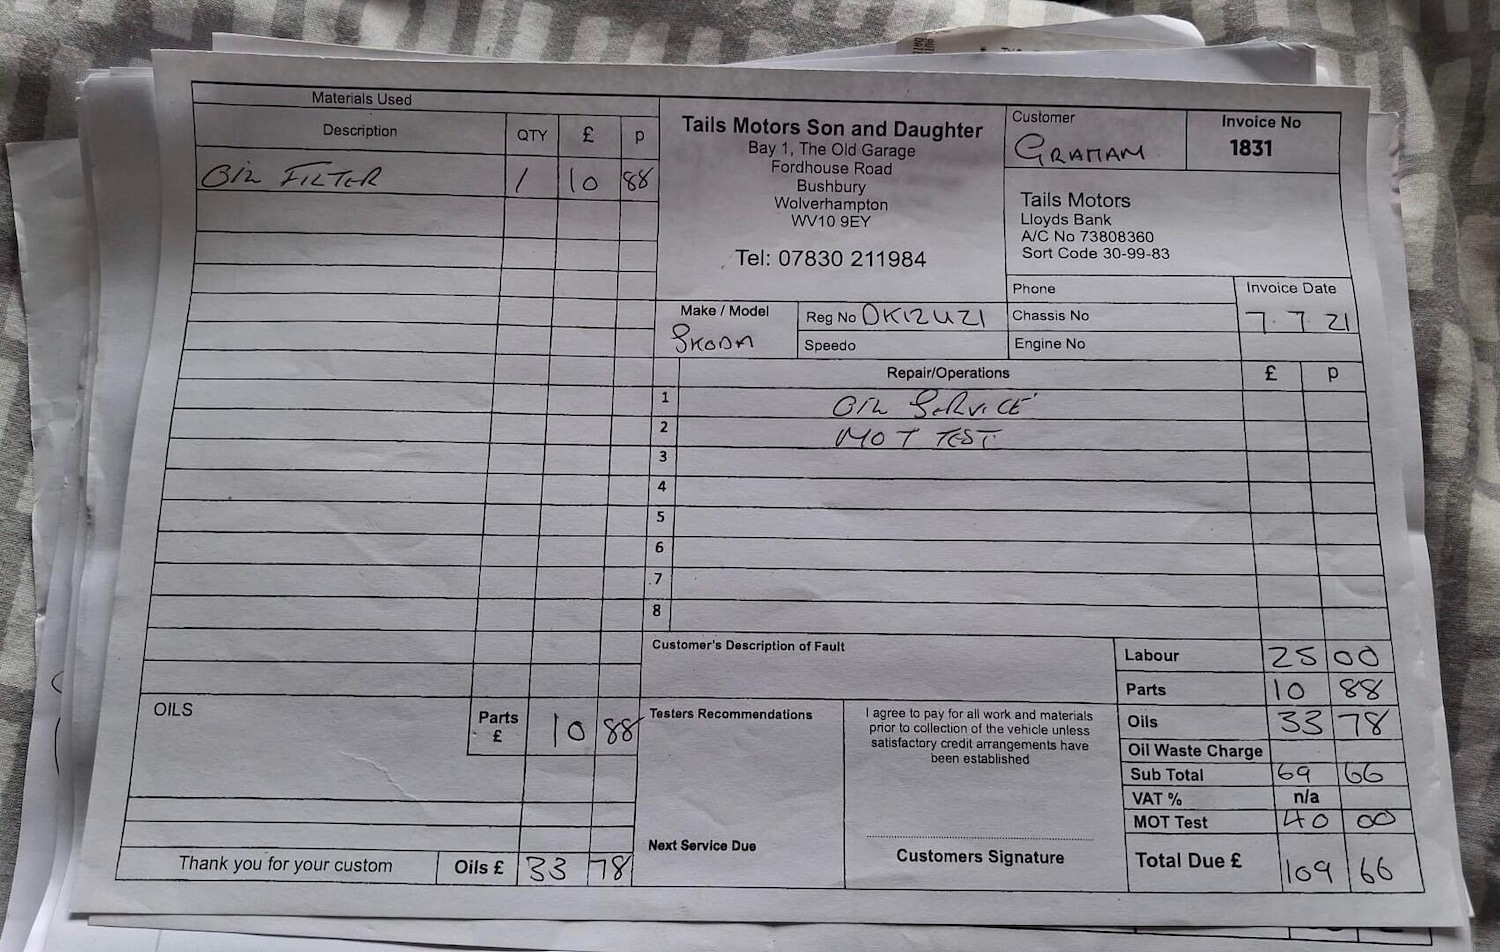 Materials Used
Description QTY £ p
OIL FILTER 1 10 88
Tails Motors Son and Daughter
Bay 1, The Old Garage
Fordhouse Road
Bushbury
Wolverhampton
WV10 9EY
Tel: 07830 211984
Customer
GRAHAM
Invoice No
1831
Tails Motors
Lloyds Bank
A/C No 73808360
Sort Code 30-99-83
Phone
Invoice Date
7.7.21
Make / Model
SKODA
Reg No DK12UZ1
Chassis No
Speedo
Engine No
Repair/Operations £ p
1 OIL SERVICE
2 MOT TEST
3
4
5
6
7
8
Customer's Description of Fault
OILS
Parts £ 10 88
Testers Recommendations
Next Service Due
I agree to pay for all work and materials
prior to collection of the vehicle unless
satisfactory credit arrangements have
been established
Customers Signature
Labour 25 00
Parts 10 88
Oils 33 78
Oil Waste Charge
Sub Total 69 66
VAT % n/a
MOT Test 40 00
Total Due £ 109 66
Thank you for your custom
Oils £ 33 78